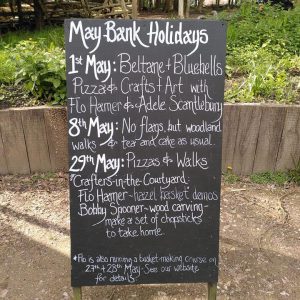 May Bank Holidays
1st May: Beltane + Bluebells
Pizza & Crafts + Art with
Flo Hamer & Adele Scantlebury
8th May: No flags, but woodland
walks & tea and cake as usual.
29th May: Pizzas & Walks
*Crafters-in-the-Courtyard:
Flo Hamer ~ hazel basket demos
Bobby Spooner ~ wood carving -
make a set of chopsticks
to take home.
*Flo is also running a basket-making course on
27th + 28th May - See our website
for details.